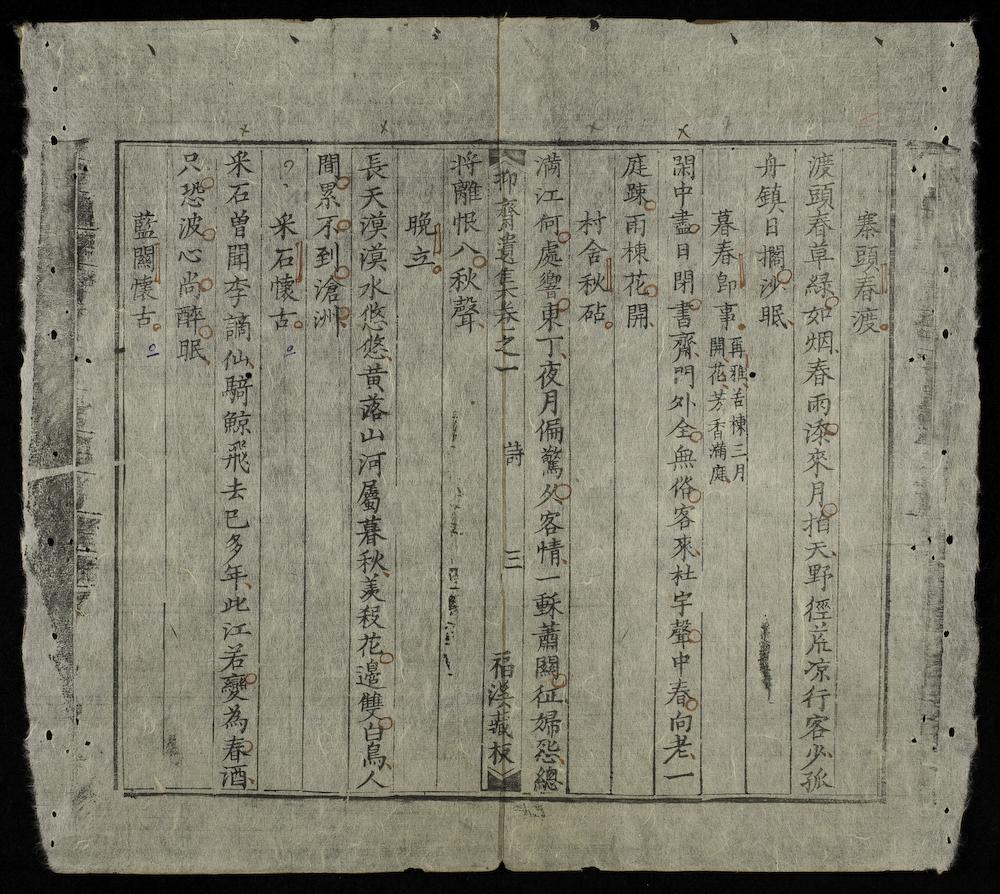 寨頭春渡
渡頭春草綠如烟春雨添來月拍天野徑荒凉行客少孤
舟鎮日擱沙眠
暮春即事
再雅苦楝三月
開花芳香滿庭
閑中盡日閉書齋門外全無俗客來杜宇聲中春向老一
庭踈雨楝花開
村舍秋砧
滿江何處響東丁夜月偏驚久客情一種蕭關征婦怨總
抑齋遺集卷之一 詩 三 福溪藏板
將離恨八秋聲
晚立
長天漠漠水悠悠黄落山河屬暮秋羨殺花邉雙白鳥人
間累不到滄洲
采石懷古
采石曾聞李謫仙騎鯨飛去已多年此江若變為春酒
只恐波心尚醉眠
藍關懷古